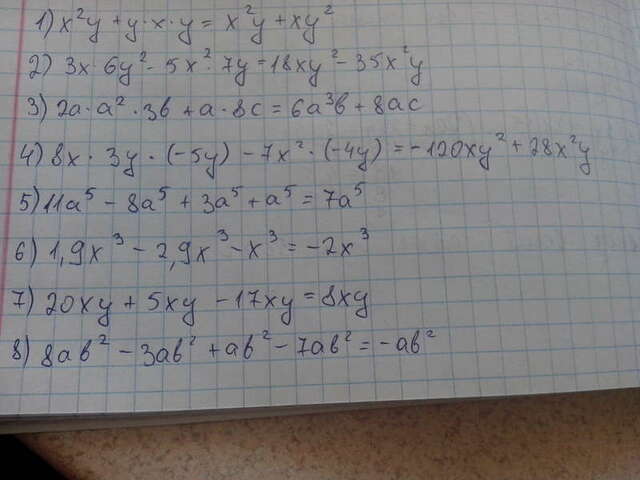 1) x²y + y·x·y = x²y + xy²
2) 3x·6y² - 5x²·7y = 18xy² - 35x²y
3) 2a·a²·3b + a·8c = 6a³b + 8ac
4) 8x·3y·(-5y) - 7x²·(-4y) = -120xy² + 28x²y
5) 11a⁵ - 8a⁵ + 3a⁵ + a⁵ = 7a⁵
6) 1,9x³ - 2,9x³ - x³ = -2x³
7) 20xy + 5xy - 17xy = 8xy
8) 8ab² - 3ab² + ab² - 7ab² = -ab²